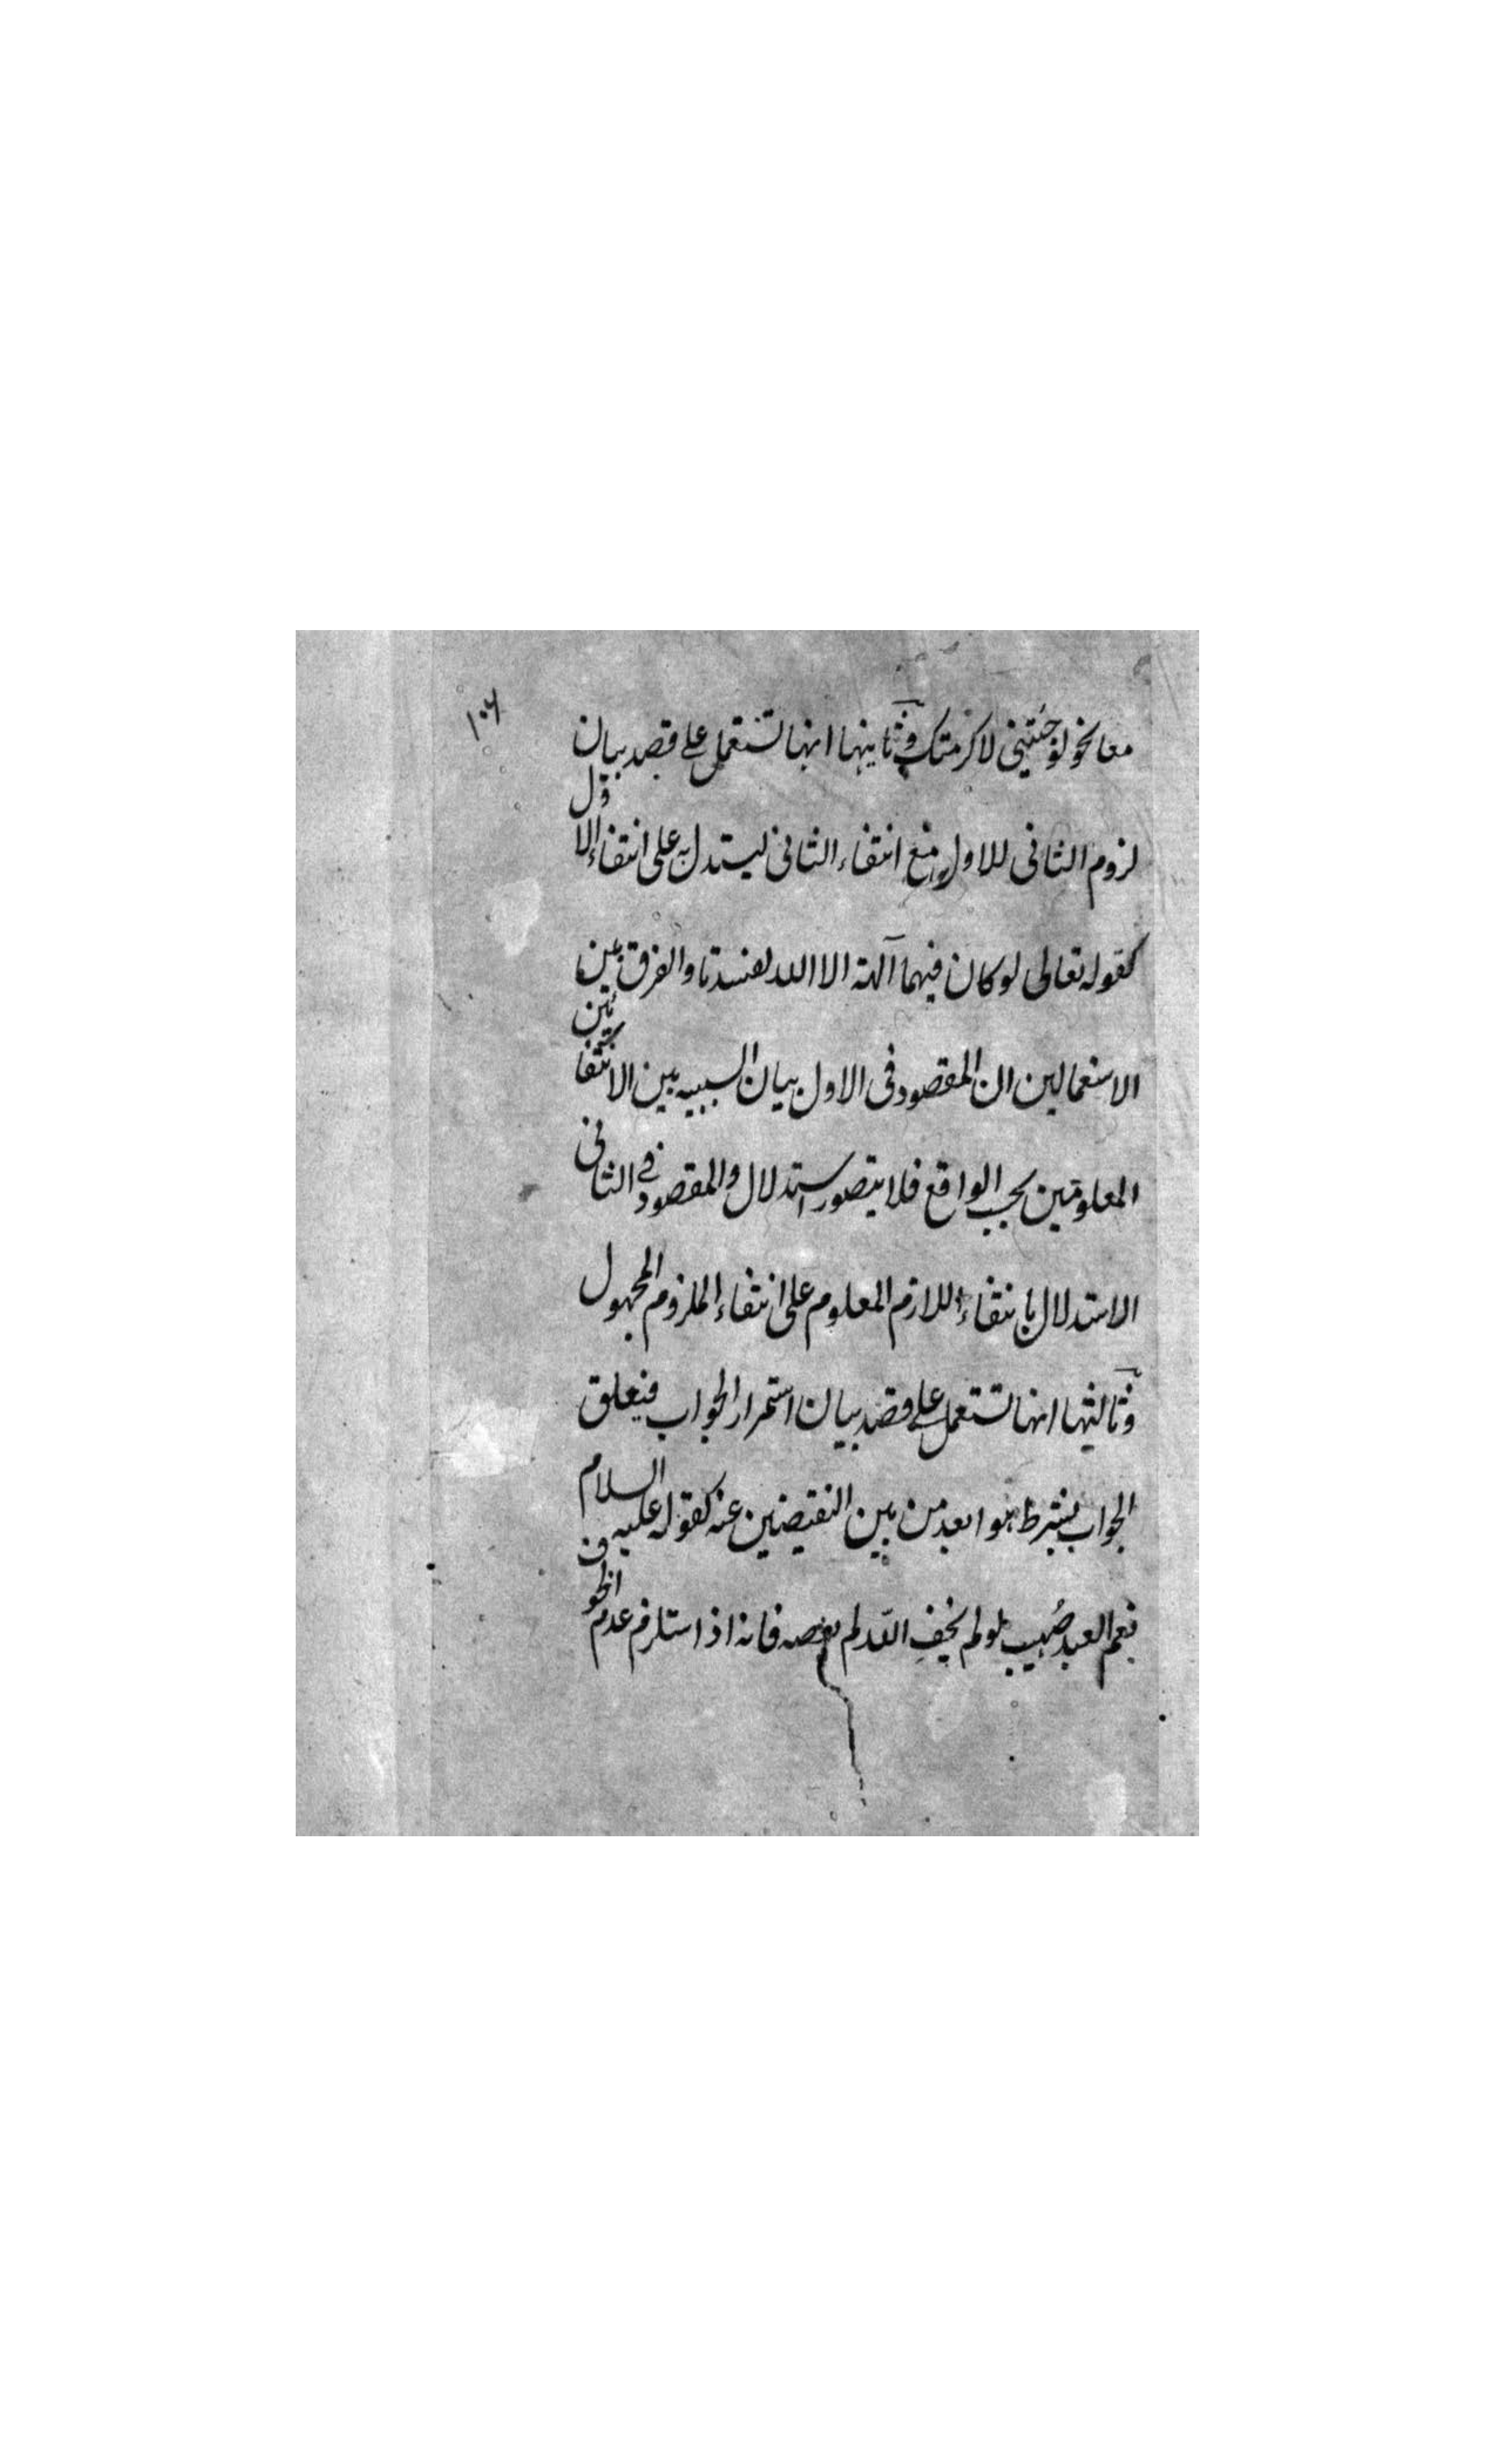 ١٠٦
معا نحو لو جئتني لاكرمتك وثانيتها انها تستعمل على قصد بيان
لزوم الثاني للاول مع انتفاء الثاني ليستدل به على انتفاء الاول
كقوله تعالى لو كان فيهما آلهة الا الله لفسدتا والفرق بين
الاستعمالين ان المقصود في الاول بيان السببيه بين الانتفائين
المعلومين بحسب الواقع فلا يتصور استدلال والمقصود في الثاني
الاستدلال بانتفاء اللازم المعلوم على انتفاء الملزوم المجهول
وثالثيتها انها تستعمل على قصد بيان استمرار الجواب فيعلق
الجواب بشرط هو ابعد من بين النقيضين عنه كقوله عليه السلام
نعم العبد صُهيب لو لم يخفِ الله لم يعصه فانه اذا استلزم عدم الخوف